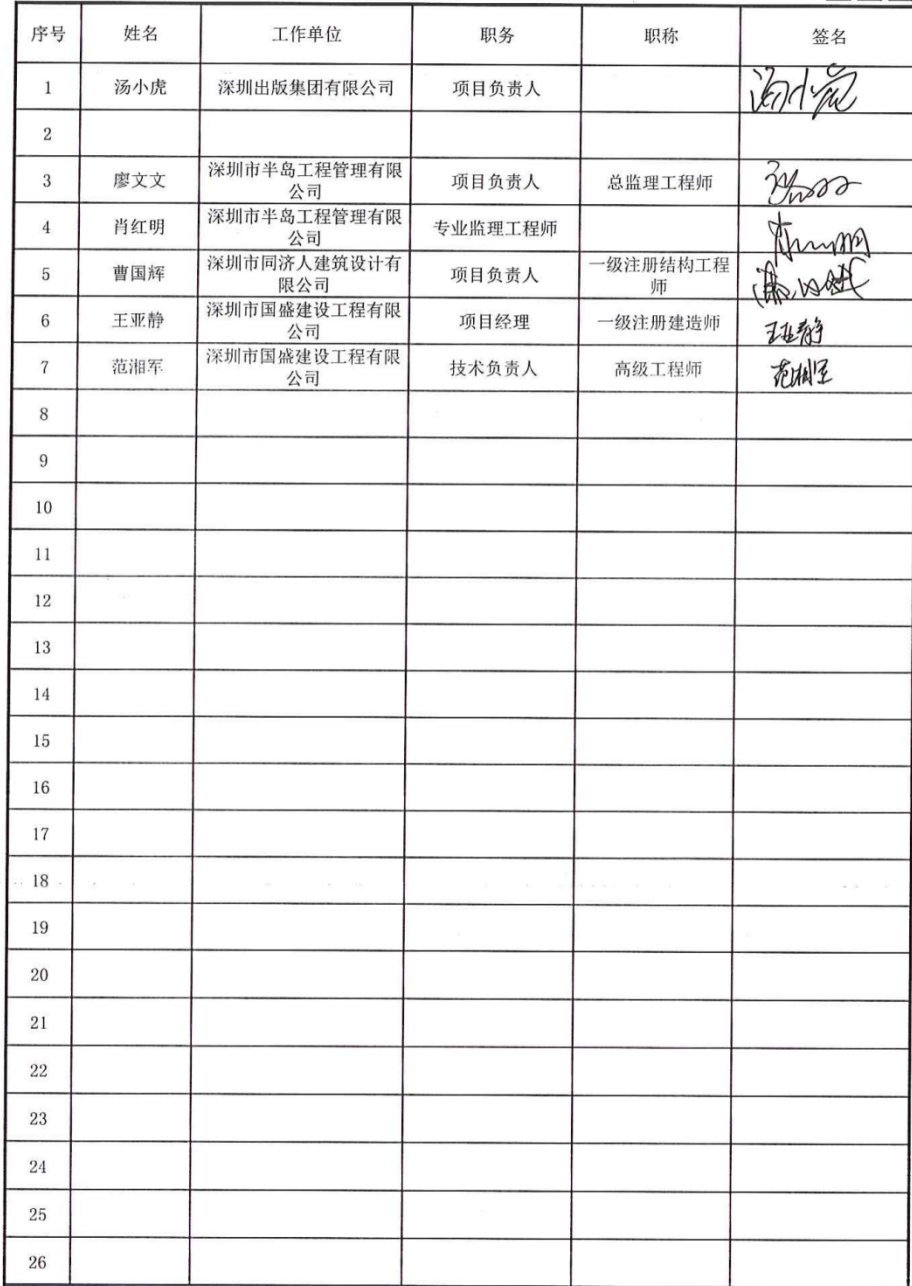 序号 姓名 工作单位 职务 职称 签名
1 汤小虎 深圳出版集团有限公司 项目负责人 汤小虎
2
3 廖文文 深圳市半岛工程管理有限公司 项目负责人 总监理工程师
4 肖红明 深圳市半岛工程管理有限公司 专业监理工程师
5 曹国辉 深圳市同济人建筑设计有限公司 项目负责人 一级注册结构工程师
6 王亚静 深圳市国盛建设工程有限公司 项目经理 一级注册建造师 王亚静
7 范湘军 深圳市国盛建设工程有限公司 技术负责人 高级工程师 范湘军
8
9
10
11
12
13
14
15
16
17
18
19
20
21
22
23
24
25
26